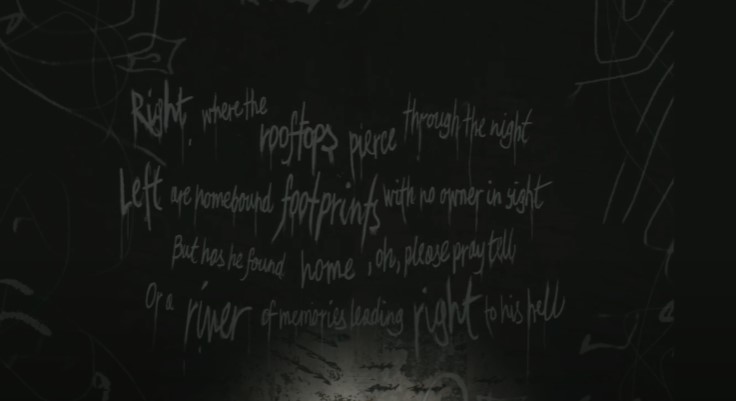 Right where the rooftops pierce through the night
Left are homebound footprints with no owner in sight
But has he found home, oh, please pray tell,
Or a river of memories leading right to his hell